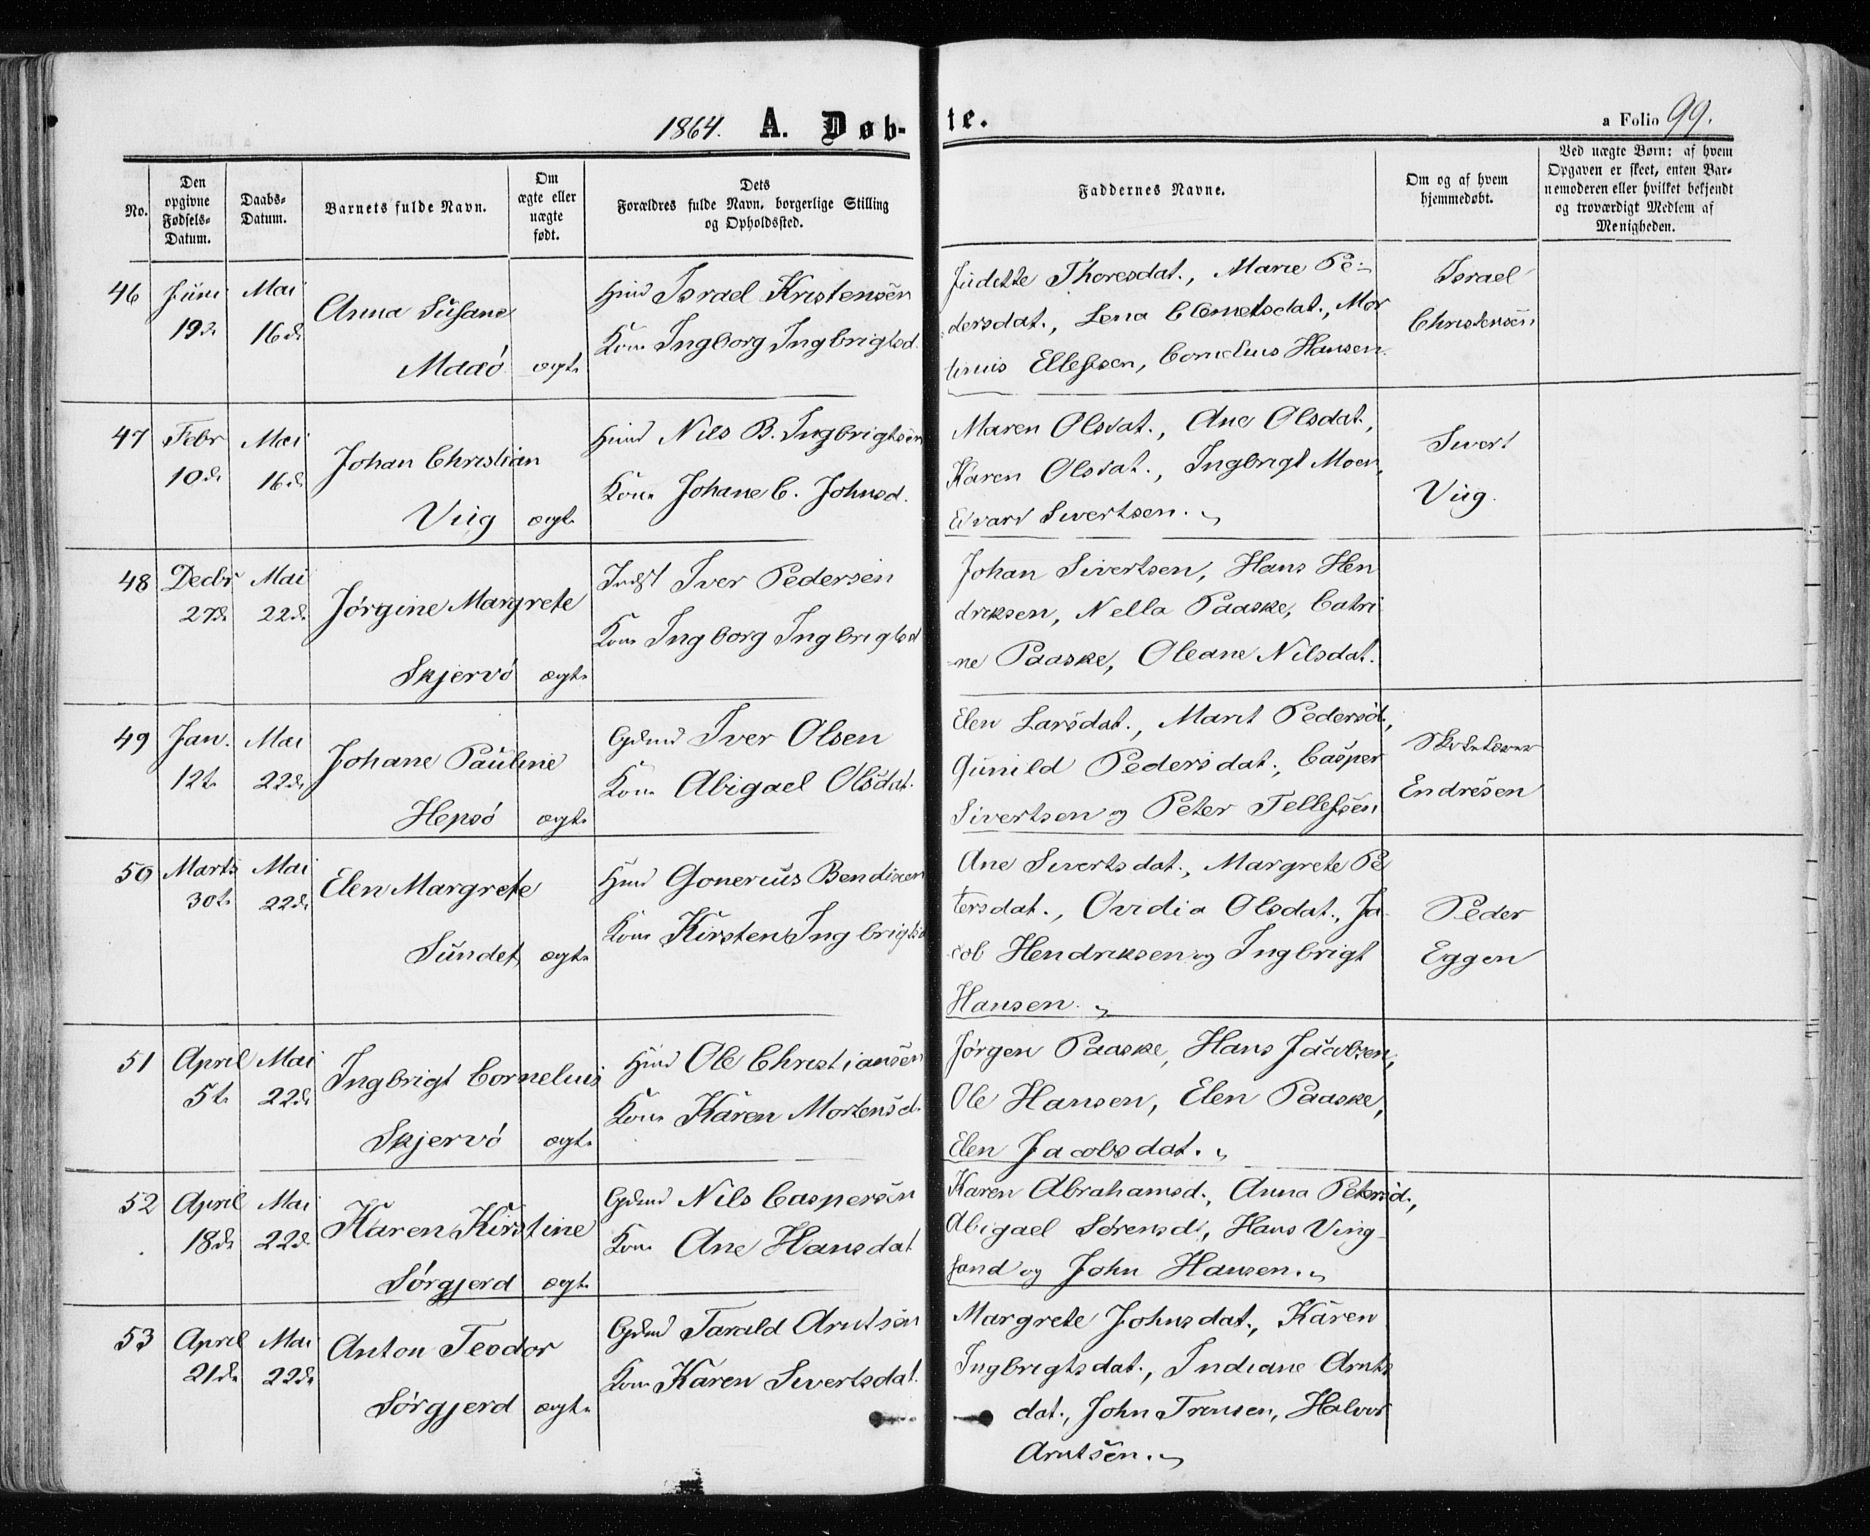 1864. A. Døb-te.
a Folio 99.
No.
Den opgivne Fødsels-Datum.
Daabs-Datum.
Barnets fulde Navn.
Om ægte eller uægte født.
Dets Forældres fulde Navn, borgerlige Stilling og Opholdssted.
Faddernes Navne.
Om og af hvem hjemmedøbt.
Ved uægte Børn: af hvem Opgaven er skeet, enten Barnemoderen eller hvilket bekjendt og troværdigt Medlem af Menigheden.
46 Juni 19d. Mai 16d.
Anna Susane
Madsø ægt.
Hmd Israel Kristensen
Kone Ingborg Ingbrigtsd.
Juditte Thoresdat., Marie Pe-
dersdat., Lena Clemetsdat., Mor
tinuis Ellefsen, Cornelius Hansen.
Israel
Christensen
47 Febr 10d. Mai 16d.
Johan Christian
Viig ægt.
Hmd Nils B. Ingbrigtsen
Kone Johane C. Johnsd.
Maren Olsdat., Ane Olsdat.,
Karen Olsdat., Ingbrigt Moen,
Edvard Sivertsen.
Sivert
Viig.
48 Decbr 27d. Mai 22d.
Jørgine Margrete
Skjervø ægt.
Indst Iver Pedersen
Kone Ingborg Ingbrigtsd
Johan Sivertsen, Hans Hen
driksen, Nella Paaske, Catri
ne Paaske, Oleane Nilsdat.
49 Jan. 12t. Mai 22d.
Johane Pauline
Hepsø ægt.
Gdmd Iver Olsen
Kone Abigael Olsdat.
Elen Larsdat., Marit Pedersd.,
Gunild Pedersdat., Casper
Sivertsen og Peter Tellefsen
Skolelærer
Endresen
50 Marts 30t. Mai 22d.
Elen Margrete
Sundet ægt.
Hmd Gonerius Bendixen
Kone Kirsten Ingbrigtsd
Ane Sivertsdat., Margrete Pe
tersdat., Ovidia Olsdat., Ja-
cob Hendriksen og Ingbrigt
Hansen.
Peder
Eggen
51 April 5t. Mai 22d.
Ingbrigt Cornelius
Skjervø ægt.
Hmd Ole Christiansen
Kone Karen Mortensd.
Jørgen Paaske, Hans Jacobsen,
Ole Hansen, Elen Paaske,
Elen Jacobsdat.
52 April 18d. Mai 22d.
Karen Kirstine
Sørgjerd ægt.
Gdmd Nils Caspersen
Kone Ane Hansdat
Karen Abrahamsd., Anna Petersd.,
Abigael Sørensd., Hans Ving-
sand og John Hansen.
53 April 21d. Mai 22d.
Anton Teodor
Sørgjerd ægt.
Gdmd Tarald Arntsen
Kone Karen Sivertsdat.
Margrete Johnsdat., Karen
Ingbrigtsdat., Indiane Arnts
dat., John Transen, Halvor
Arntsen.